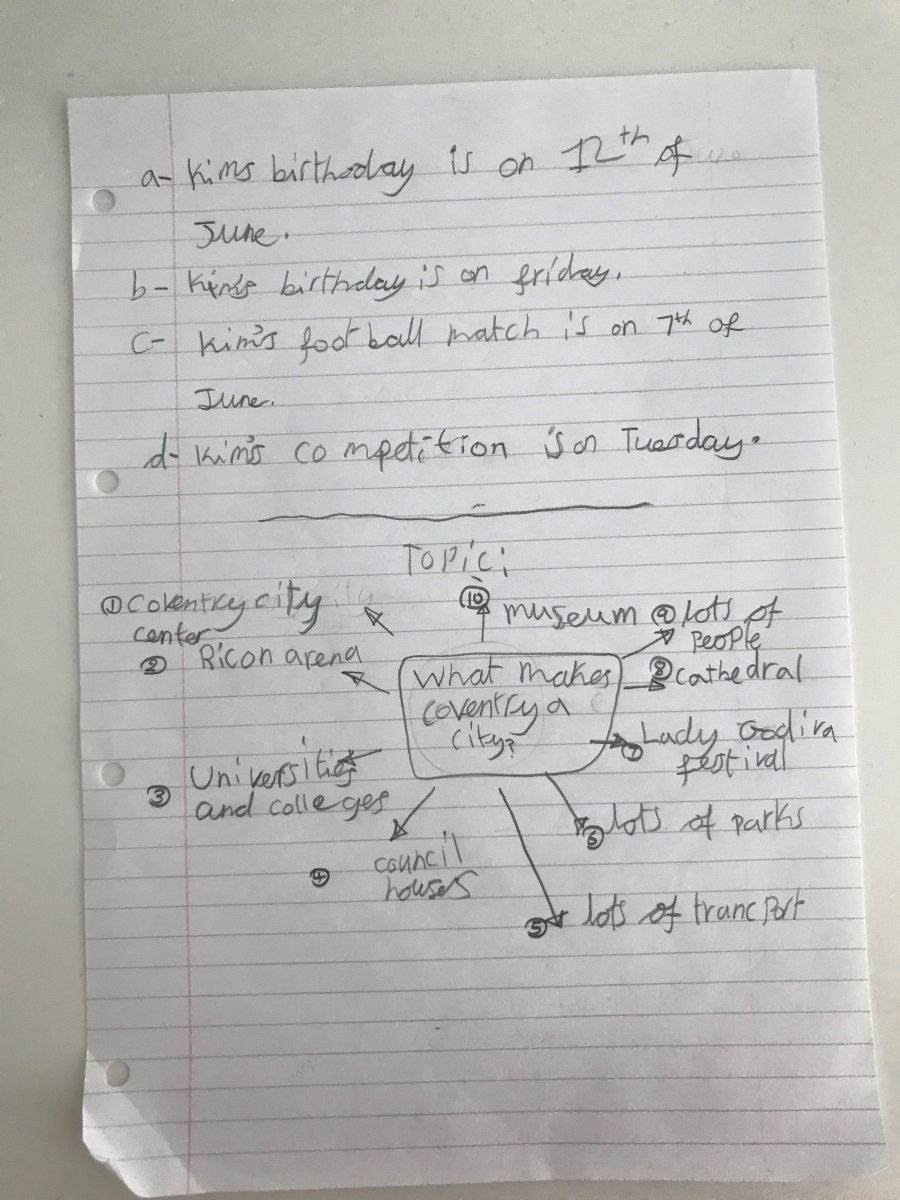 a- Kims birthday is on 12th of
June.
b- Kim's birthday is on friday.
c- Kim's football match is on 7th of
June.
d- Kim's competition is on Tuesday.
Topic:
① Coventry city
center
② Ricon arena
③ Universities
and colleges
④ council
houses
What makes
coventry a
city?
⑩ museum
⑨ lots of
people
⑧ cathedral
⑦ Lady Godiva
festival
⑥ lots of parks
⑤ lots of trancport